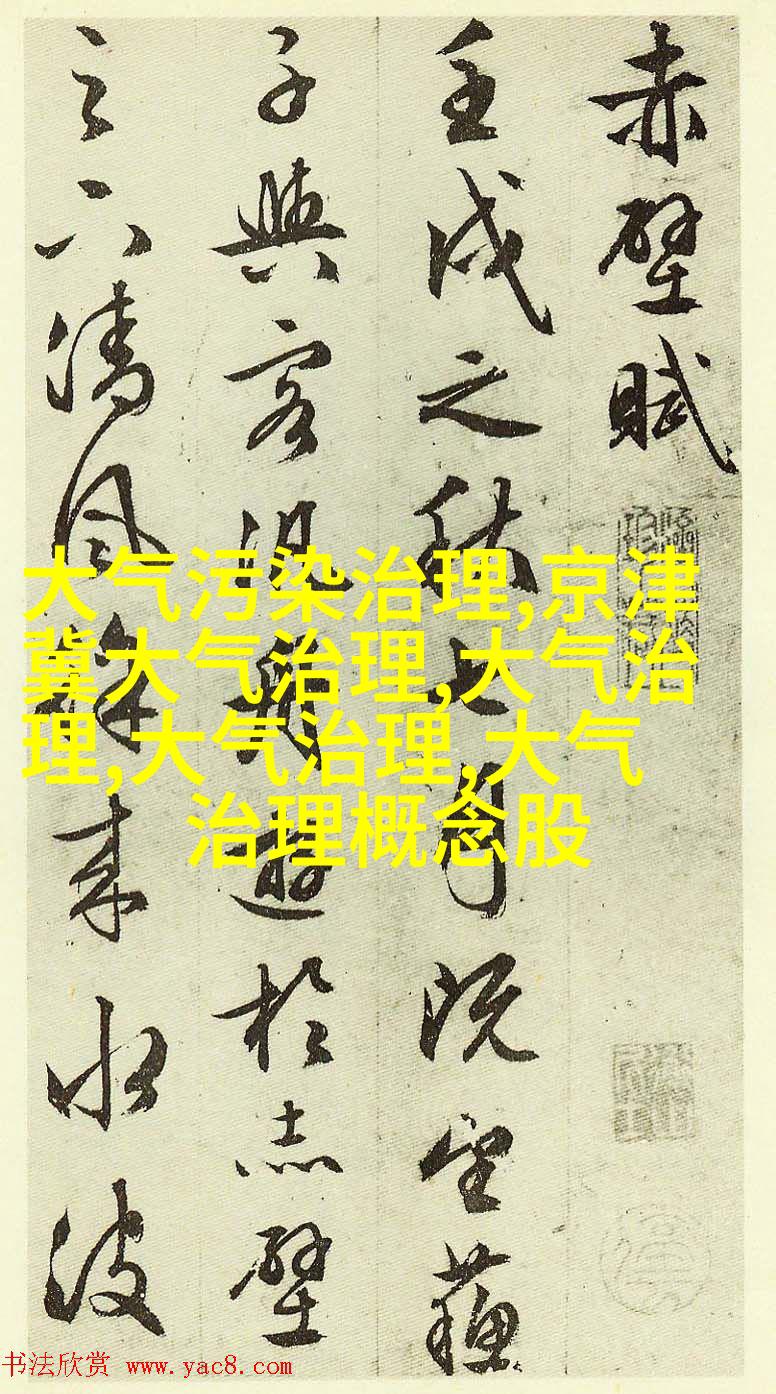 赤壁賦
壬戌之秋七月既望蘇
子與客泛舟遊於赤壁
之下清風徐来水波
大气污染治理,京津
冀大气治理,大气治
理,大气治理,大气
治理概念股
书法欣赏 www.yac8.com